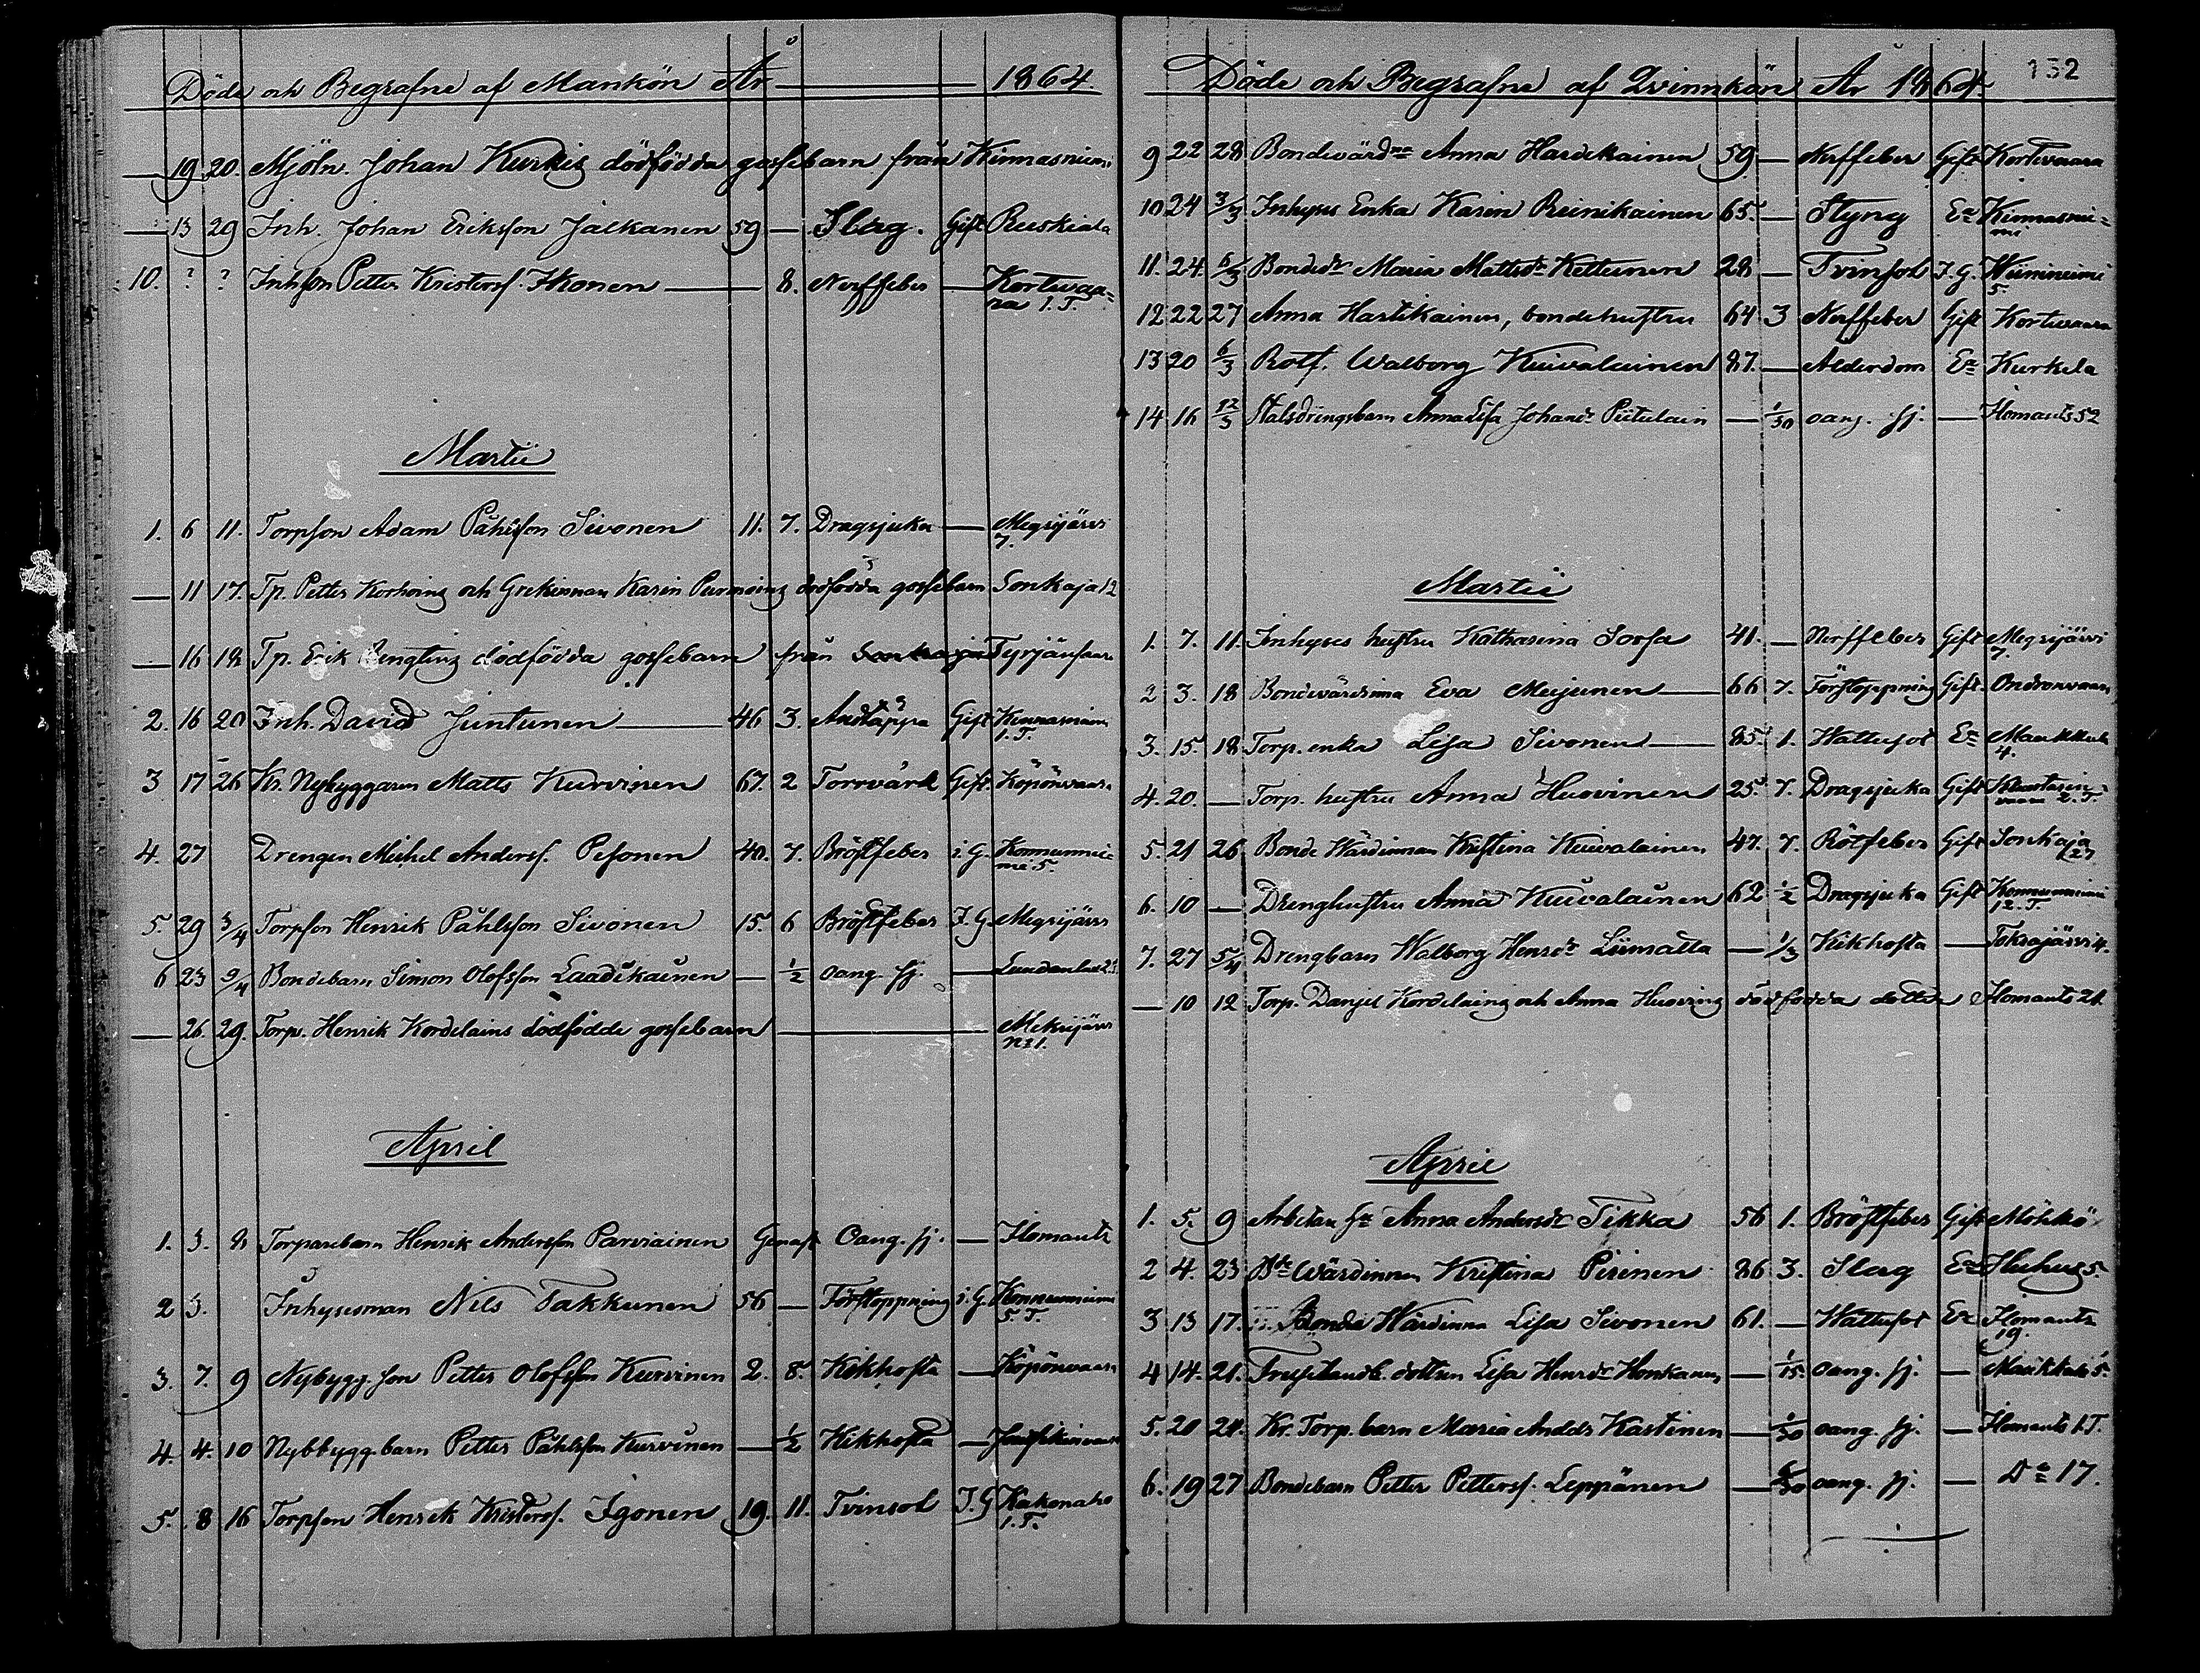 Döde och Begrafne af Mankön År — 1864.
— 19 20. Mjöln. Johan Kurkis dödfödda gossebarn från Kinnasniemi
— 13 29 Inh. Johan Eriksson Jalkanen 59 — Slag. Gift Ruskiala
10. ? ? Inhson Petter Kristerss. Ikonen — 8. Nerffeber — Kortevaa=
ra 1.T.
Martii
1. 6 11. Torpson Adam Påhlsson Sivonen 11. 7. Dragsjuka — Megrijärvi
7.
— 11 17. Tp. Petter Korhoins och Grekinnan Karin Purmoins dödfödda gossebarn Sonkaja 12
— 16 18 Tp. Erik Bengtins dödfödda gossebarn från Tyrjänsaari
2. 16 20 Inh. David Juntunen — 46 3. Andtäppa Gift Kinnasniemi
1.T.
3 17 26 Kr. Nybyggaren Matts Kurvinen 67. 2 Torrvärk Gift. Köpönvaara
4. 27 Drengen Michel Anderss. Pesonen 40. 7. Bröstfeber i.G. Konnunnie
mi 5.
5. 29 3/4 Torpson Henrik Påhlsson Sivonen 15. 6 Bröstfeber I.G. Megrijärvi
6 23 9/4 Bondebarn Simon Olofsson Laadikainen — 1/2 oang. sj. —
— 26. 29. Torp. Henrik Kordelains dödfödde gossebarn — Mekrijärvi
No 1.
April
1. 3. 8 Torparebarn Henrik Andersson Parviainen Genast Oang. sj. — Ilomants
2 3. Inhysesman Nils Takkunen 56 — Förstoppning i.G. Konnunniemi
5.T.
3. 7. 9 Nybygg. son Petter Olofsson Kurvinen 2. 8. Kikhosta — Köpönvaara
4. 4. 10 Nybbyggebarn Petter Påhlsson Kurvinen — 1/2 Kikhosta —
5. 8 16 Torpson Henrik Kristerss. Igonen 19. 11. Tvinsot I.G. Kakonaho
1.T.
Döde och Begrafne af Qvinnkön År 1864. 132
9 22 28 Bondevärdna Anna Hardikainen 59 — Nerffeber Gift Kortevaara
10 24 3/3 Inhyses Enka Karin Reinikainen 65. — Styng Ea Kinnasnie=
mi
11. 24. 6/3 Bondedr Maria Mattsdr Kettunen 28 — Tvinsot I.G. Niininiemi
5.
12 22 27 Anna Hartikainen, bondehustru 64 3 Nerffeber Gift Kortevaara
13 20 6/3 Rotf. Walborg Kuivalainen 87. — Ålderdom Ea Kurkela
14 16 12/3 Stalsdringsbarn Anna Lisa Johansdr Piitulain — 1/30 oang. sj. — Ilomants 52
Martii
1. 7. 11. Inhyses hustru Katharina Sorsa 41. — Nerffeber Gift Megrijärvi
7.
2 3. 18 Bondevärdinna Eva Meijunen — 66 7. Förstoppning Gift. Ondronvaara
3. 15. 18 Torp. enka Lisa Sivonen — 85. 1. Wattusot Ea
4.
4. 20. — Torp. hustru Anna Huovinen 25. 7. Dragsjuka Gift
5. 21 26 Bonde Wärdinnan Kristina Kuivalainen 47. 7. Rötfeber Gift Sonkaja
27
6. 10 — Drenghustru Anna Kuivalainen 62 1/2 Dragsjuka Gift Konnunniemi
12.T.
7. 27 5/4 Drengbarn Walborg Henrsdr Liimatta — 1/3 Kikhosta — Tokrajärvi 4.
— 10 12 Torp. Danjel Kordelains och Anna Huovins dödfödda dotter Ilomants 21
April
1. 5. 9 Arbetar hu Anna Andersdr Tikka 56 1. Bröstfeber Gift Möhkö
2 4. 23 Bde Wärdinnan Kristina Pirinen 86 3. Slag Ea Huhus 5.
3 13 17. Bonde Wärdinna Lisa Sivonen 61. — Wattusot Ea Ilomants
19.
4 14. 21. dottren Lisa Henrsdr Honkanen — 1/15. oang. sj. — 5.
5. 20 24. Kr. Torp. barn Maria Andsdr Kastinen — 1/30 oang. sj. — Ilomants 1.T.
6. 19 27 Bondebarn Petter Petterss. Leppänen — oang. sj. — Do 17.